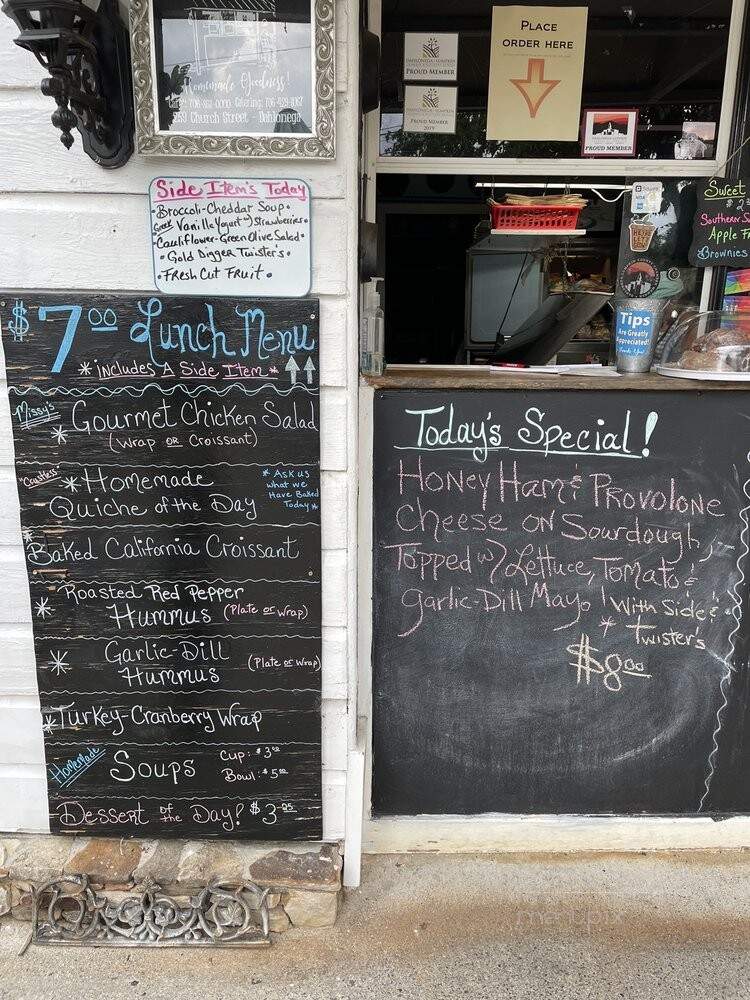 Homemade Goodness!
259 Church Street - Dahlonega
PLACE
ORDER HERE
PROUD MEMBER
PROUD MEMBER
2019
PROUD MEMBER
Side Item's Today
• Broccoli-Cheddar Soup •
• Greek Vanilla Yogurt w/ Strawberries •
• Cauliflower-Green Olive Salad •
• Gold Digger Twister's •
• Fresh Cut Fruit •
$7.00 Lunch Menu
* Includes A Side Item *
Missy's
* Gourmet Chicken Salad
(Wrap or Croissant)
"Crustless"
* Homemade
Quiche of the Day
* Ask us
what we
Have Baked
Today *
* Baked California Croissant
* Roasted Red Pepper
Hummus (Plate or Wrap)
* Garlic-Dill
Hummus (Plate or Wrap)
* Turkey-Cranberry Wrap
Homemade
Soups
Cup: $
Bowl: $5
Dessert of the Day! $3.25
Tips
Are Greatly
Appreciated!
Thank You!
Sweet
Southern S
Apple F
Brownies
Today's Special!
Honey Ham & Provolone
Cheese on Sourdough
Topped w/ Lettuce, Tomato &
Garlic-Dill Mayo! With Side &
* Twister's
$8.00